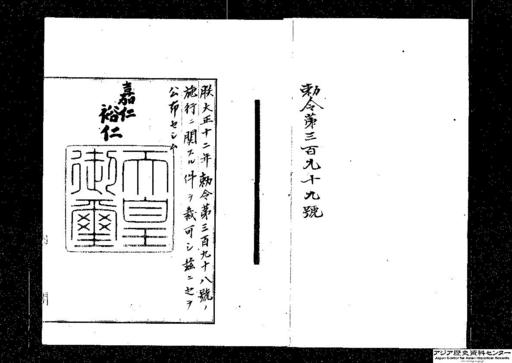 勅令第三百九十九號
朕大正十二年勅令第三百九十八號ノ
施行ニ關スル件ヲ裁可シ茲ニ之ヲ
公布セシム
嘉仁
裕仁
天皇
御璽
アジア歴史資料センター
Japan Center for Asian Historical Records